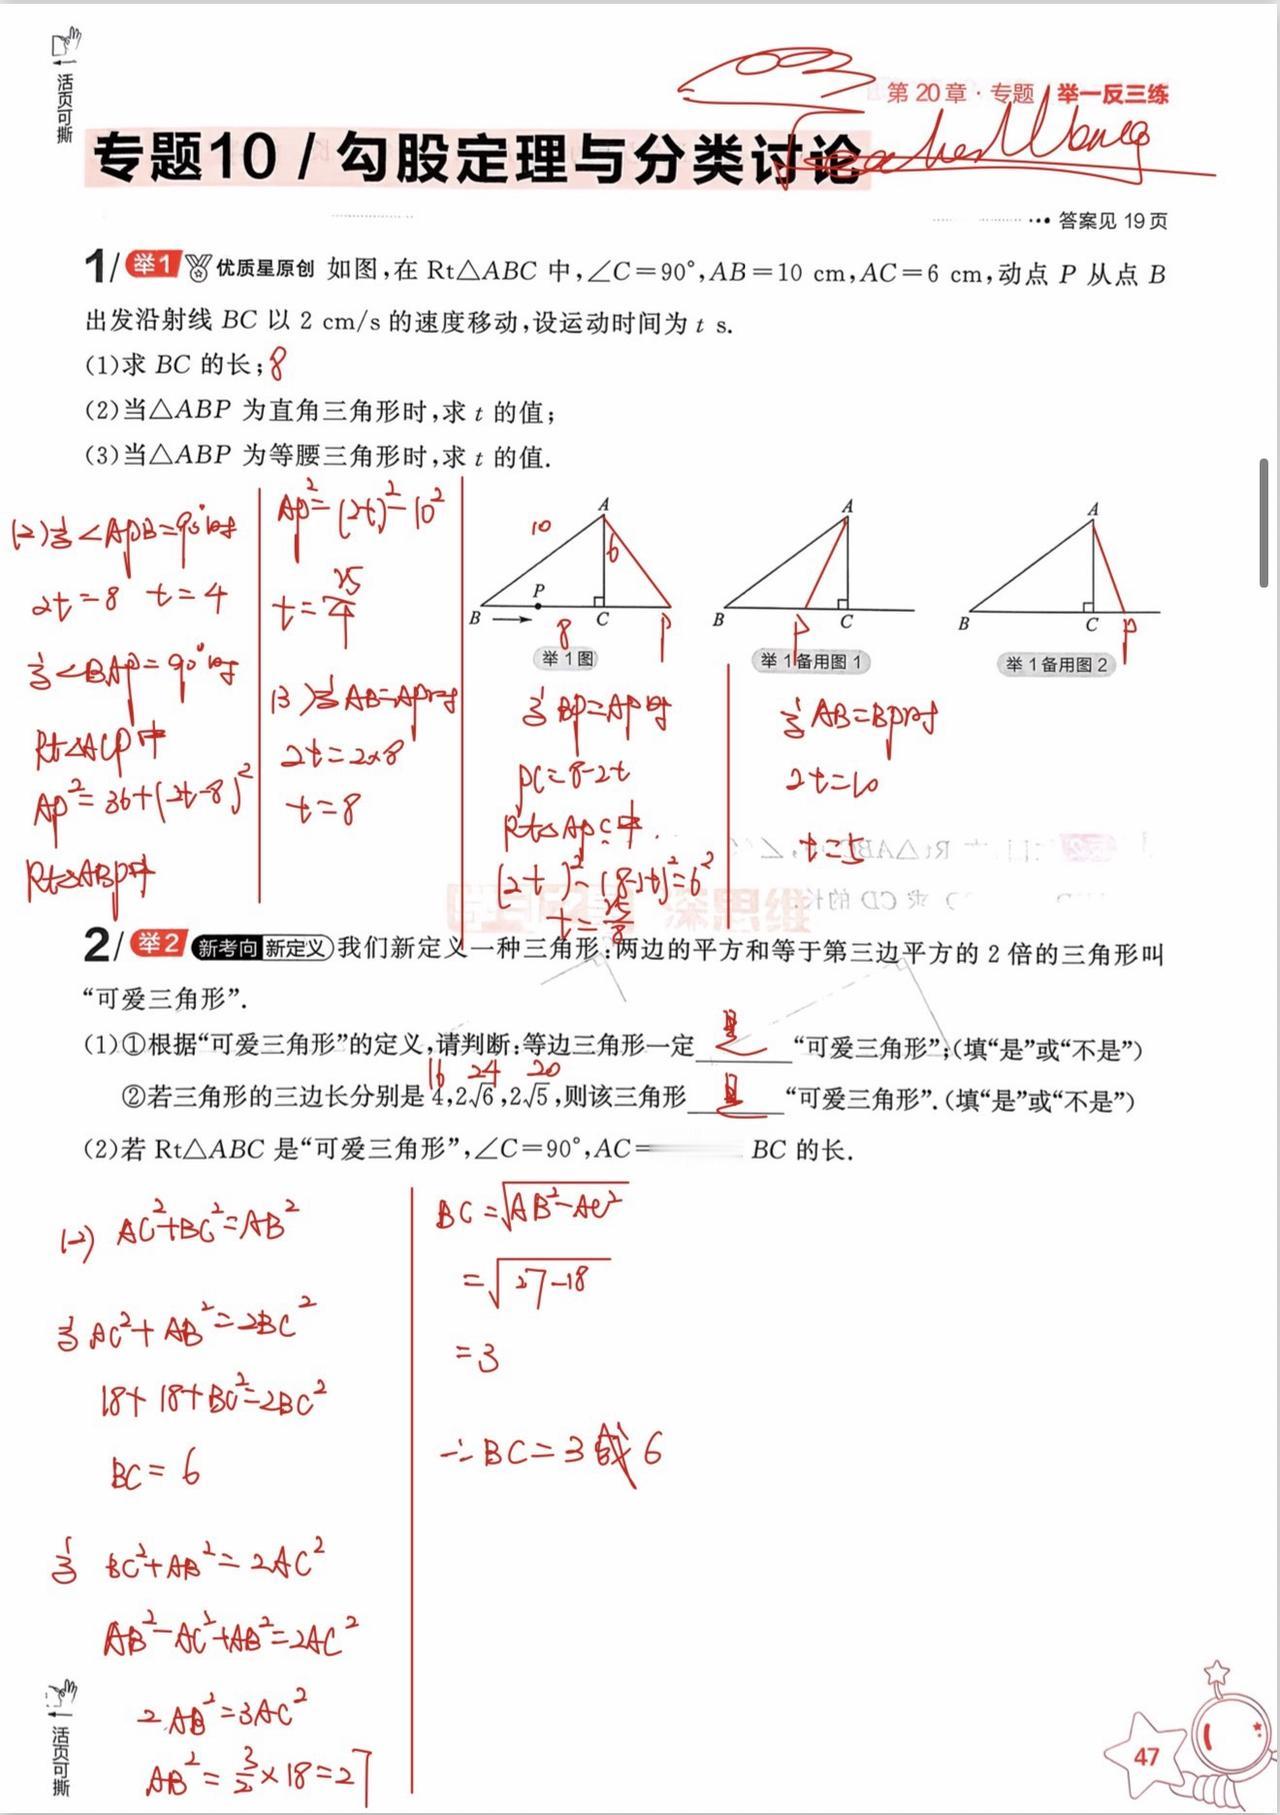 活页可撕
第20章·专题 举一反三练
Teacher Wang
专题10 / 勾股定理与分类讨论
… 答案见 19 页
1/ 举1 优质星原创 如图,在 Rt△ABC 中,∠C=90°,AB=10 cm,AC=6 cm,动点 P 从点 B
出发沿射线 BC 以 2 cm/s 的速度移动,设运动时间为 t s.
(1)求 BC 的长;8
(2)当△ABP 为直角三角形时,求 t 的值;
(3)当△ABP 为等腰三角形时,求 t 的值.
(2)当∠APB=90°时
2t=8 t=4
当∠BAP=90°时
Rt△ACP中
AP²=36+(2t-8)²
Rt△ABP中
AP²=(2t)²-10²
t=25/4
(3)当AB=AP时
2t=2×8
t=8
A
10
6
P
B
8
C
P
举1图
A
B
P
C
举1备用图1
A
B
C
P
举1备用图2
当BP=AP时
PC=8-2t
Rt△APC中
(2t)²-(8-2t)²=6²
t=25/8
当AB=BP时
2t=10
t=5
2/ 举2 新考向 新定义 我们新定义一种三角形:两边的平方和等于第三边平方的 2 倍的三角形叫
“可爱三角形”.
(1)①根据“可爱三角形”的定义,请判断:等边三角形一定 是 “可爱三角形”;(填“是”或“不是”)
16 24 20
②若三角形的三边长分别是 4,2√6,2√5,则该三角形 是 “可爱三角形”.(填“是”或“不是”)
(2)若 Rt△ABC 是“可爱三角形”,∠C=90°,AC= BC 的长.
(2) AC²+BC²=AB²
当AC²+AB²=2BC²
18+18+BC²=2BC²
BC=6
当 BC²+AB²=2AC²
AB²-AC²+AB²=2AC²
2AB²=3AC²
AB²=3/2×18=27
BC=√AB²-AC²
=√27-18
=3
∴BC=3或6
活页可撕
47